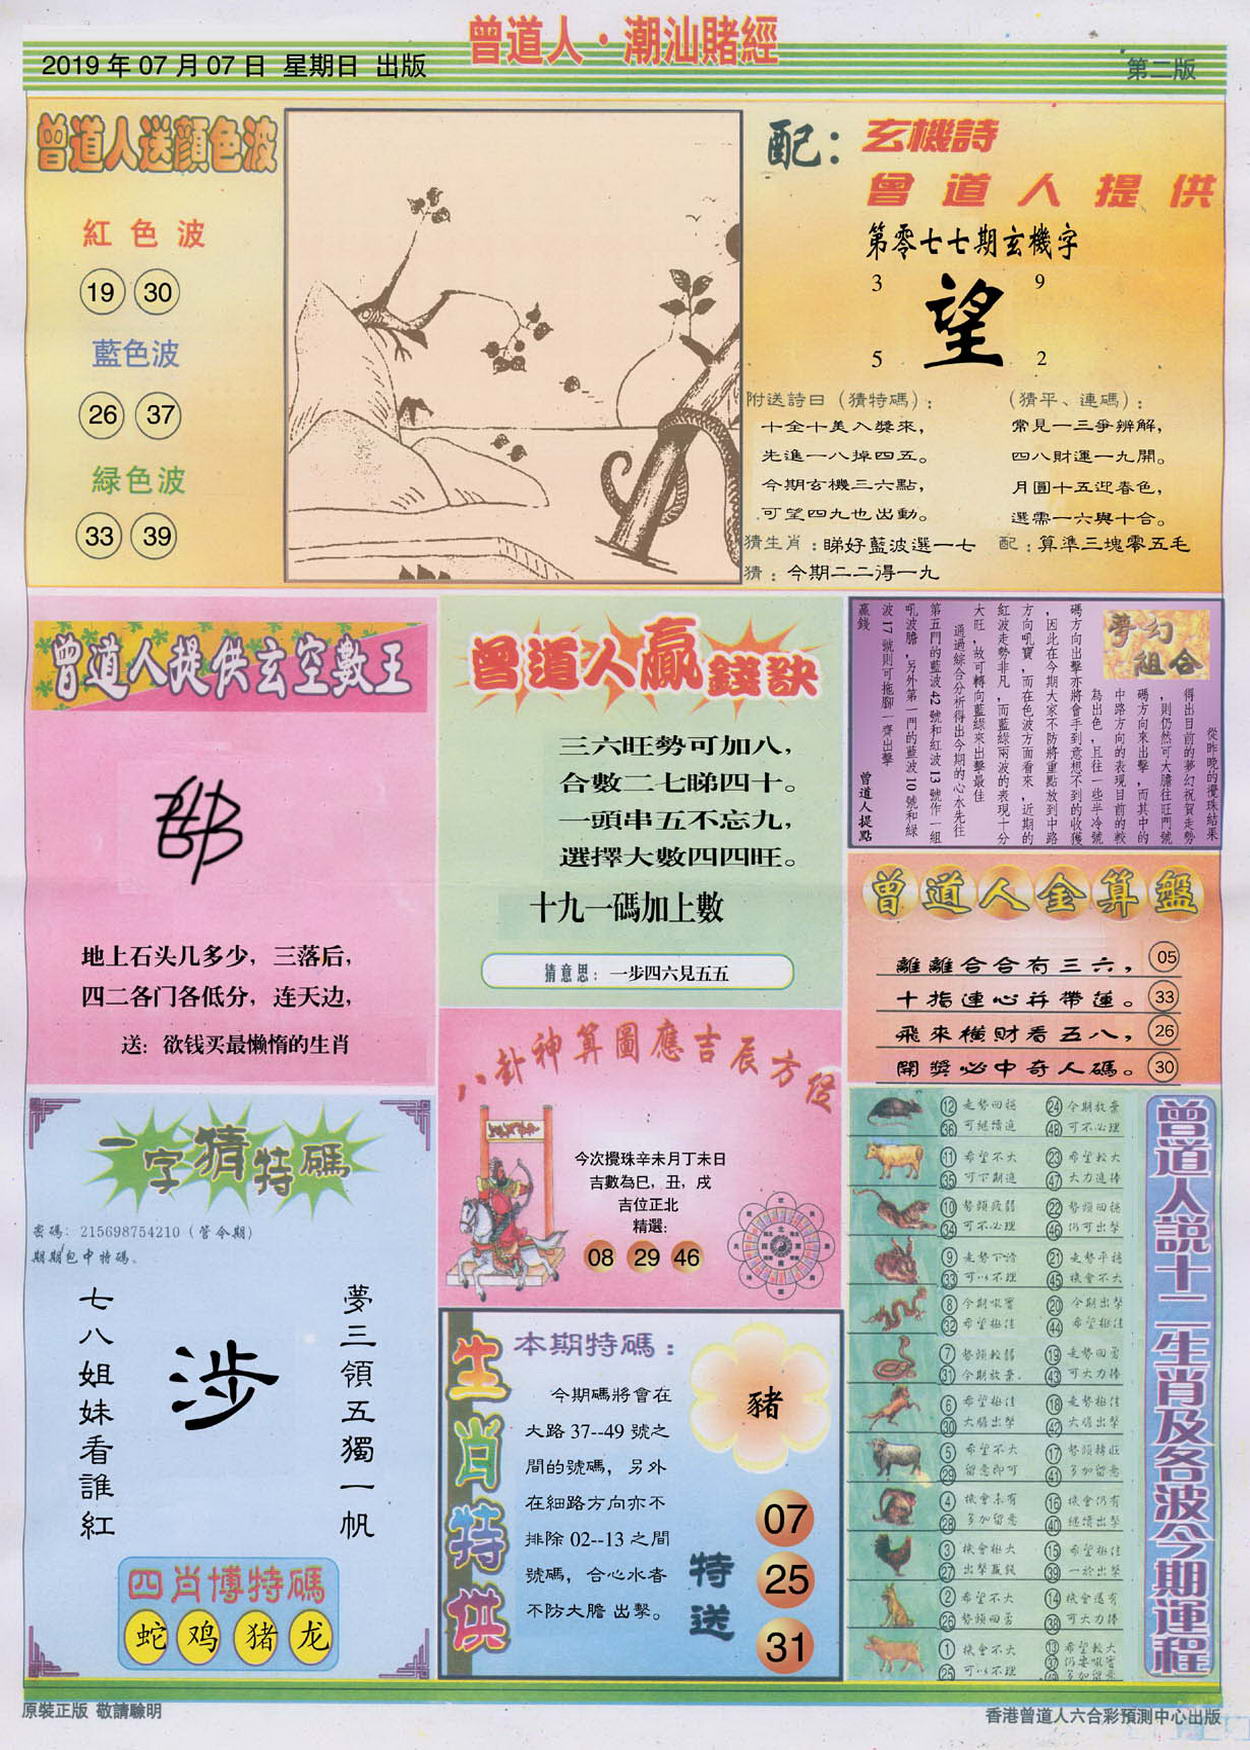 曾道人·潮汕賭經
2019年07月07日 星期日 出版
第二版
曾道人送顔色波
紅色波
19 30
藍色波
26 37
緑色波
33 39
配：玄機詩
曾道人提供
第零七七期玄機字
3 9
望
5 2
附送詩曰（猜特碼）：
十全十美入獎來，
先進一八掉四五。
今期玄機三六點，
可望四九也出動。
（猜平、連碼）：
常見一三爭辨解，
四八財運一九開。
月圓十五迎春色，
選需一六與十合。
猜生肖：睇好藍波選一七
配：算準三塊零五毛
猜：今期二二得一九
曾道人提供玄空數王
地上石头几多少，三落后，
四二各门各低分，连天边，
送：欲钱买最懒惰的生肖
曾道人贏錢訣
三六旺勢可加八，
合數二七睇四十。
一頭串五不忘九，
選擇大數四四旺。
十九一碼加上數
猜意思：一步四六見五五
夢幻組合
從昨晚的攪珠結果
得出目前的夢幻祝賀走勢
，則仍然可大膽往旺門號
碼方向來出擊，而其中的
中路方向的表現目前的較
為出色，且往一些半冷號
碼方向出擊亦將會手到意想不到的收獲
，因此在今期大家不防將重點放到中路
方向吼寶，而在色波方面看來，近期的
紅波走勢非凡，而藍綠兩波的表現十分
大旺，故可轉向藍綠來出擊最佳
通過綜合分析得出今期的心水先往
第五門的藍波42號和紅波13號作一組
吼波膽，另外第一門的藍波10號和綠
波17號則可拖腳一齊出擊
贏錢
曾道人提點
曾道人金算盤
離離合合有三六， 05
十指連心并帶蓮。 33
飛來橫財看五八， 26
開獎必中奇人碼。 30
八卦神算圖應吉辰方位
今次攪珠辛未月丁未日
吉數為巳，丑，戌
吉位正北
精選：
08 29 46
一字猜特碼
密碼：215698754210（管令期）
期期包中特碼。
夢三領五獨一帆
涉
七八姐妹看誰紅
四肖博特碼
蛇 鸡 猪 龙
生肖特供
本期特碼：
今期碼將會在
大路37--49號之
間的號碼，另外
在細路方向亦不
排除02--13之間
號碼，合心水者
不防大膽出擊。
豬
特送
07
25
31
曾道人說十二生肖及各波今期運程
12 走勢回穩 24 今期放棄
36 可繼續追 48 可不必理
11 希望不大 23 希望較大
35 可下期追 47 大力追捧
10 勢頭疲弱 22 勢頭回穩
34 可不必理 46 仍可出擊
9 走勢下滑 21 走勢平穩
33 可以不理 45 機會不大
8 今期吼實 20 今期出擊
32 希望極佳 44 希望極佳
7 勢頭較弱 19 走勢回勇
31 今期放棄. 43 可大力捧
6 希望極佳 18 走勢極佳
30 大膽出擊 42 大膽出擊
5 希望不大 17 勢頭轉旺
29 留意即可 41 多加留意
4 機會未有 16 機會仍有
28 多加留意 40 繼續出擊
3 機會極大 15 希望極佳
27 出擊贏錢 39 一於出擊
2 希望不大 14 機會還有
26 勢頭回勇 38 可大力捧
1 機會不大 13 希望較大
25 可以不理 37 仍要吼實
49 多加留意
原裝正版 敬請驗明
香港曾道人六合彩預測中心出版